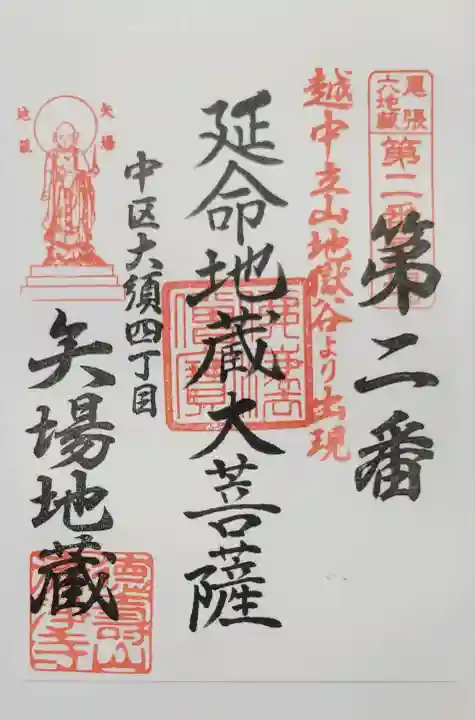 尾張
六地蔵
第二番
第二番
越中立山地獄谷より出現
延命地蔵大菩薩
佛法
僧寶
中区大須四丁目
矢場地蔵
矢場
地蔵